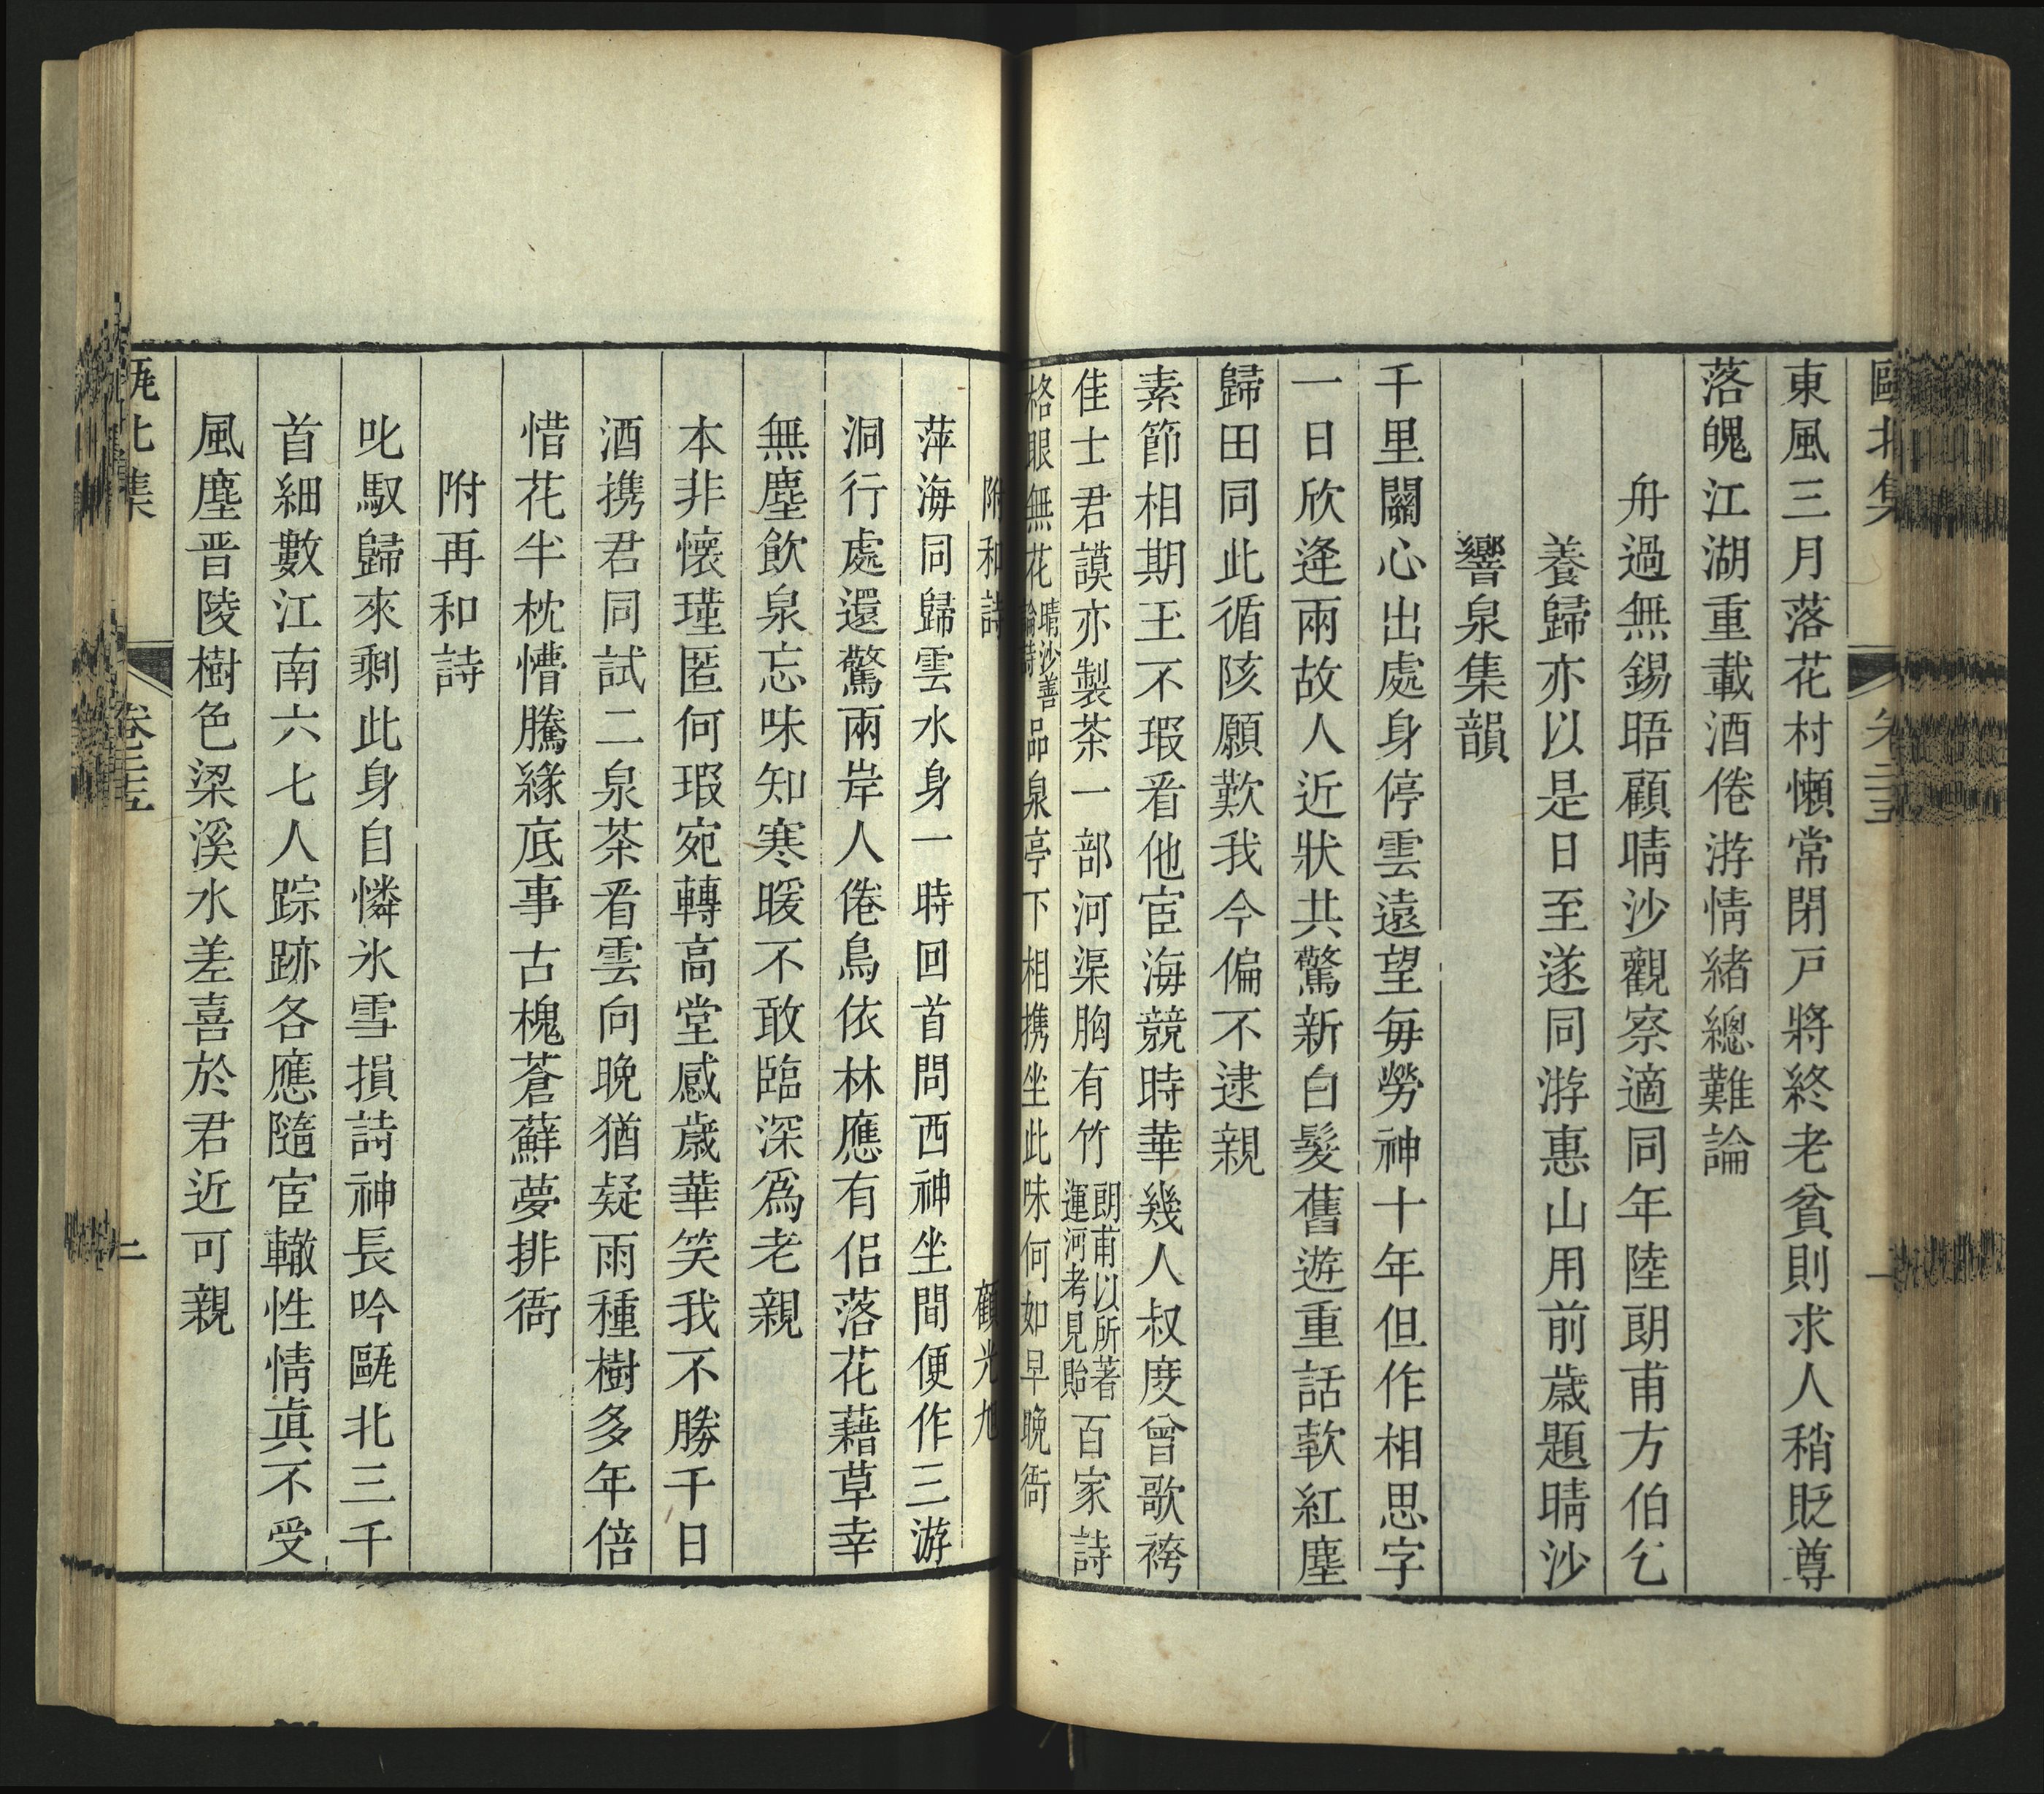 甌北集 卷二三 一
東風三月落花村懶常閉戸將終老貧則求人稍貶尊
落魄江湖重載酒倦游情緒總難論
舟過無錫晤顧晴沙觀察適同年陸朗甫方伯乞
養歸亦以是日至遂同游惠山用前歲題晴沙
響泉集韻
千里關心出處身停雲遠望每勞神十年但作相思字
一日欣逢兩故人近狀共驚新白髮舊遊重話歎紅塵
歸田同此循陔願歎我今偏不逮親
素節相期玉不瑕看他宦海競時華幾人叔度曾歌袴
佳士君謨亦製茶一部河渠胸有竹朗甫以所著運河考見貽百家詩
格眼無花晴沙善論詩品泉亭下相携坐此味何如早晚衙
附和詩 顧光旭
萍海同歸雲水身一時回首問西神坐間便作三游
洞行處還驚兩岸人倦鳥依林應有侶落花藉草幸
無塵飲泉忘味知寒暖不敢臨深爲老親
本非懷瑾匿何瑕宛轉高堂感歲華笑我不勝千日
酒携君同試二泉茶看雲向晚猶疑雨種樹多年倍
惜花半枕懵騰緣底事古槐蒼蘚夢排衙
附再和詩
叱馭歸來剩此身自憐氷雪損詩神長吟甌北三千
首細數江南六七人踪跡各應隨宦轍性情眞不受
風塵晋陵樹色梁溪水差喜於君近可親
甌北集 卷二三 二